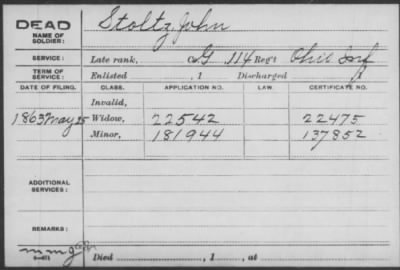 DEAD
NAME OF SOLDIER: Stoltz, John
SERVICE: Late rank, Co. G, 114 Reg't Ohio Inf
TERM OF SERVICE: Enlisted , 1 Discharged , 1
DATE OF FILING. CLASS. APPLICATION NO. LAW. CERTIFICATE NO.
Invalid,
1863 May 25 Widow, 22542 22475
Minor, 181944 137852
ADDITIONAL SERVICES:
REMARKS:
Died , 1 , at